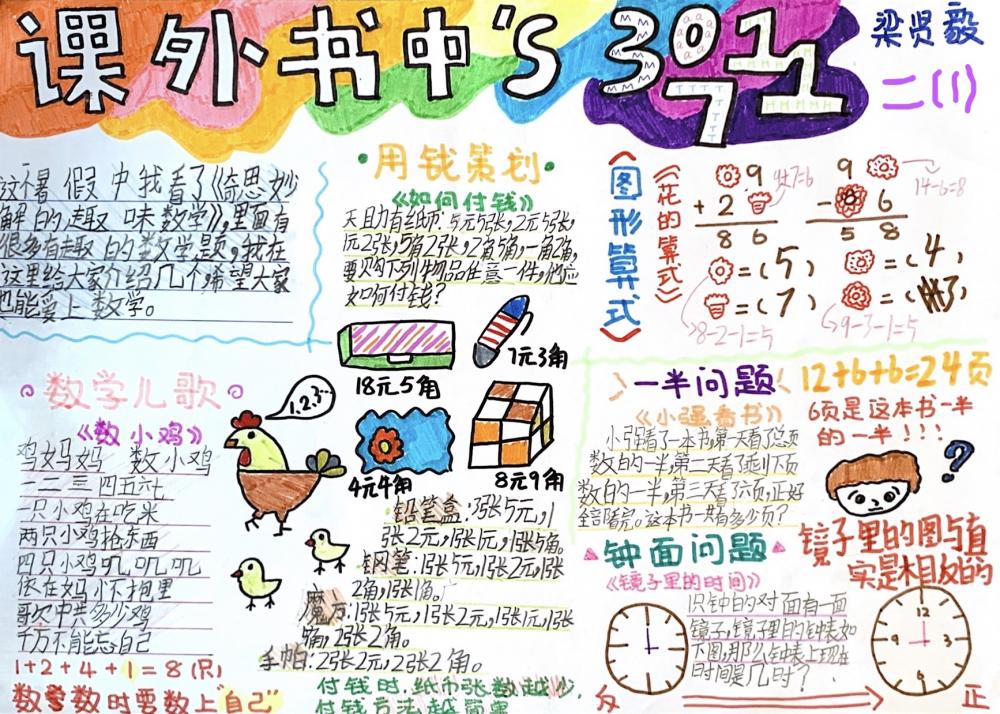 课外书中's 3971
梁贤毅
二(1)
这个暑假中我看了《奇思妙
解的趣味数学》,里面有
很多有趣的数学题,我在
这里给大家介绍几个,希望大家
也能爱上数学。
数学儿歌
《数小鸡》
鸡妈妈 数小鸡
一二三四五六七
一只小鸡在吃米
两只小鸡抢东西
四只小鸡叽叽叽
依在妈妈怀抱里
歌中共多少鸡
千万不能忘自己
1+2+4+1=8(只)
数学数时要数上“自己”
1.2.3…
用钱策划
《如何付钱》
天且力有纸币:5元5张,2元5张,
1元2张,5角2张,2角5角,一角2角,
要购下列物品任意一件,他应
如何付钱?
18元5角
7元3角
4元4角
8元9角
铅笔盒:3张5元,1
张2元,1张1元,1张5角。
钢笔:1张5元,1张2元,1张
2角,1张1角。
魔方:1张5元,1张2元,1张1元,1张
5角,2张2角。
手帕:2张2元,2张2角。
付钱时,纸币张数越少,
付钱方法越简单
《图形算式》
《花的算式》
9
+ 2
8 6
9
- 6
5 8
14-6=8
=(5)
=(7)
8-2-1=5
=(4)
=(3)
9-3-1=5
一半问题
《小强看书》
小强看了一本书,第一天看了总页
数的一半,第二天看了剩下页
数的一半,第三天看了六页,正好
全部看完。这本书一共有多少页?
12+6+6=24页
6页是这本书一半
的一半!!!
?
钟面问题
《镜子里的时间》
识钟的对面有一面
镜子,镜子里的钟表如
下图,那么钟表上现在
时间是几时?
镜子里的图与真
实是相反的
12
9 3
6
反
正